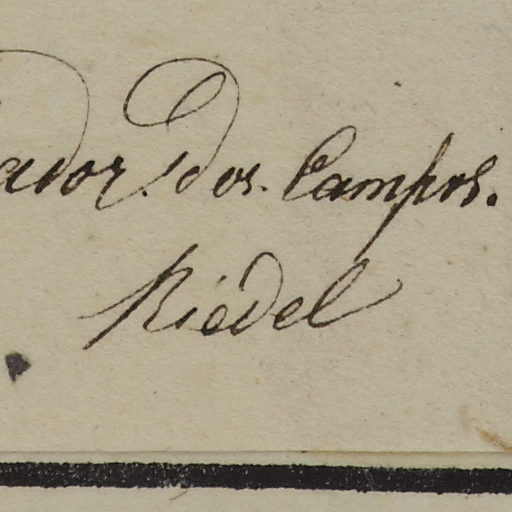 ador. dos. Campos.
Riedel